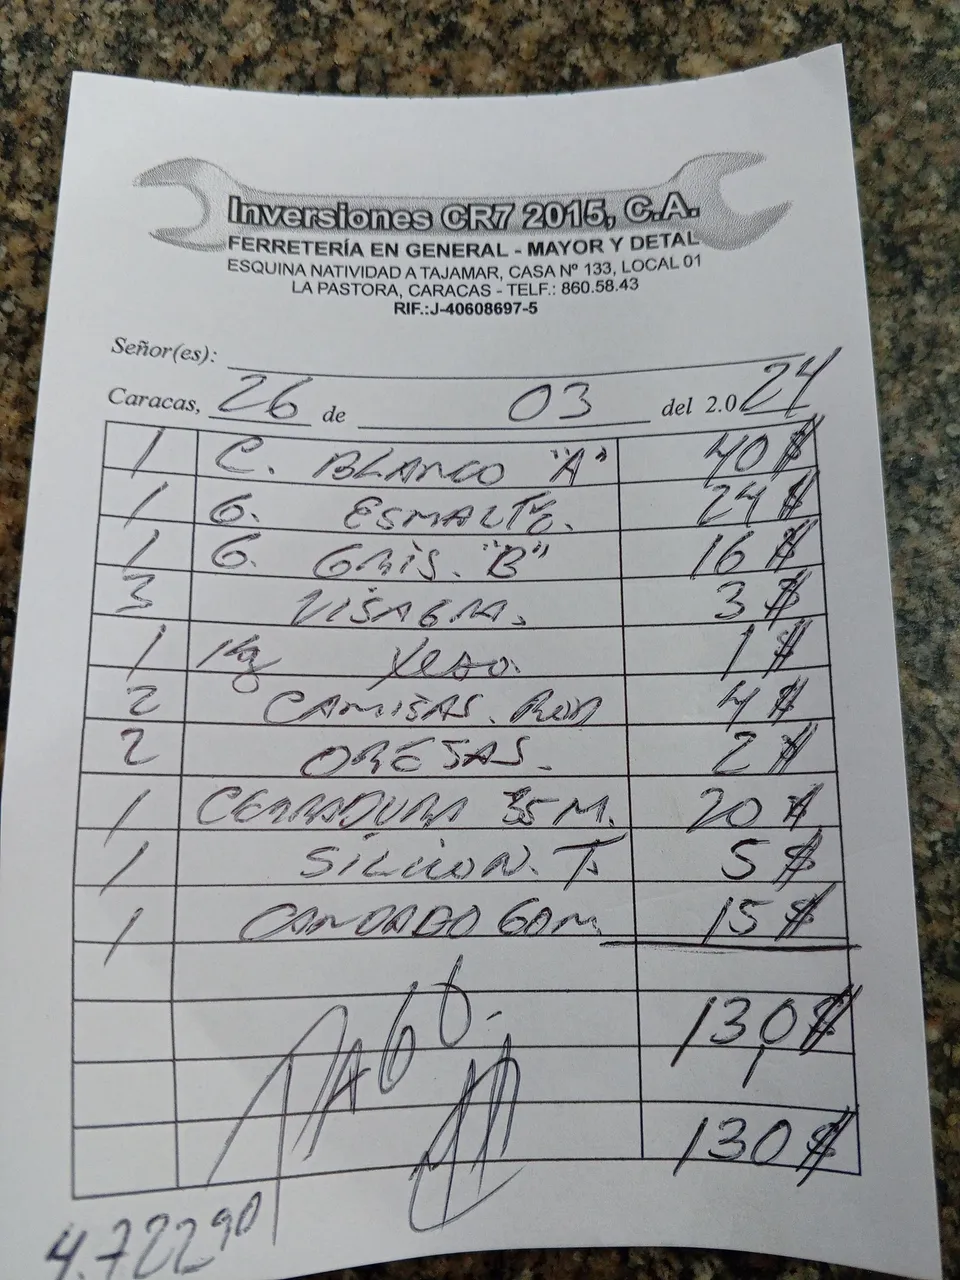 Inversiones CR7 2015, C.A.
FERRETERÍA EN GENERAL - MAYOR Y DETAL
ESQUINA NATIVIDAD A TAJAMAR, CASA Nº 133, LOCAL 01
LA PASTORA, CARACAS - TELF.: 860.58.43
RIF.:J-40608697-5
Señor(es):
Caracas, 26 de 03 del 2.024
1 C. BLANCO "A" 40 $
1 G. ESMALTE. 24 $
1 G. GRIS. "B" 16 $
3 VISAGRA. 3 $
1 Kg Yeso. 1 $
2 CAMISAS. ROD 4 $
2 OREJAS. 2 $
1 CERRADURA 35 M. 20 $
1 SILICON. T. 5 $
1 CANDADO 60 M. 15 $
130 $
PAGO.
130 $
4.722 90